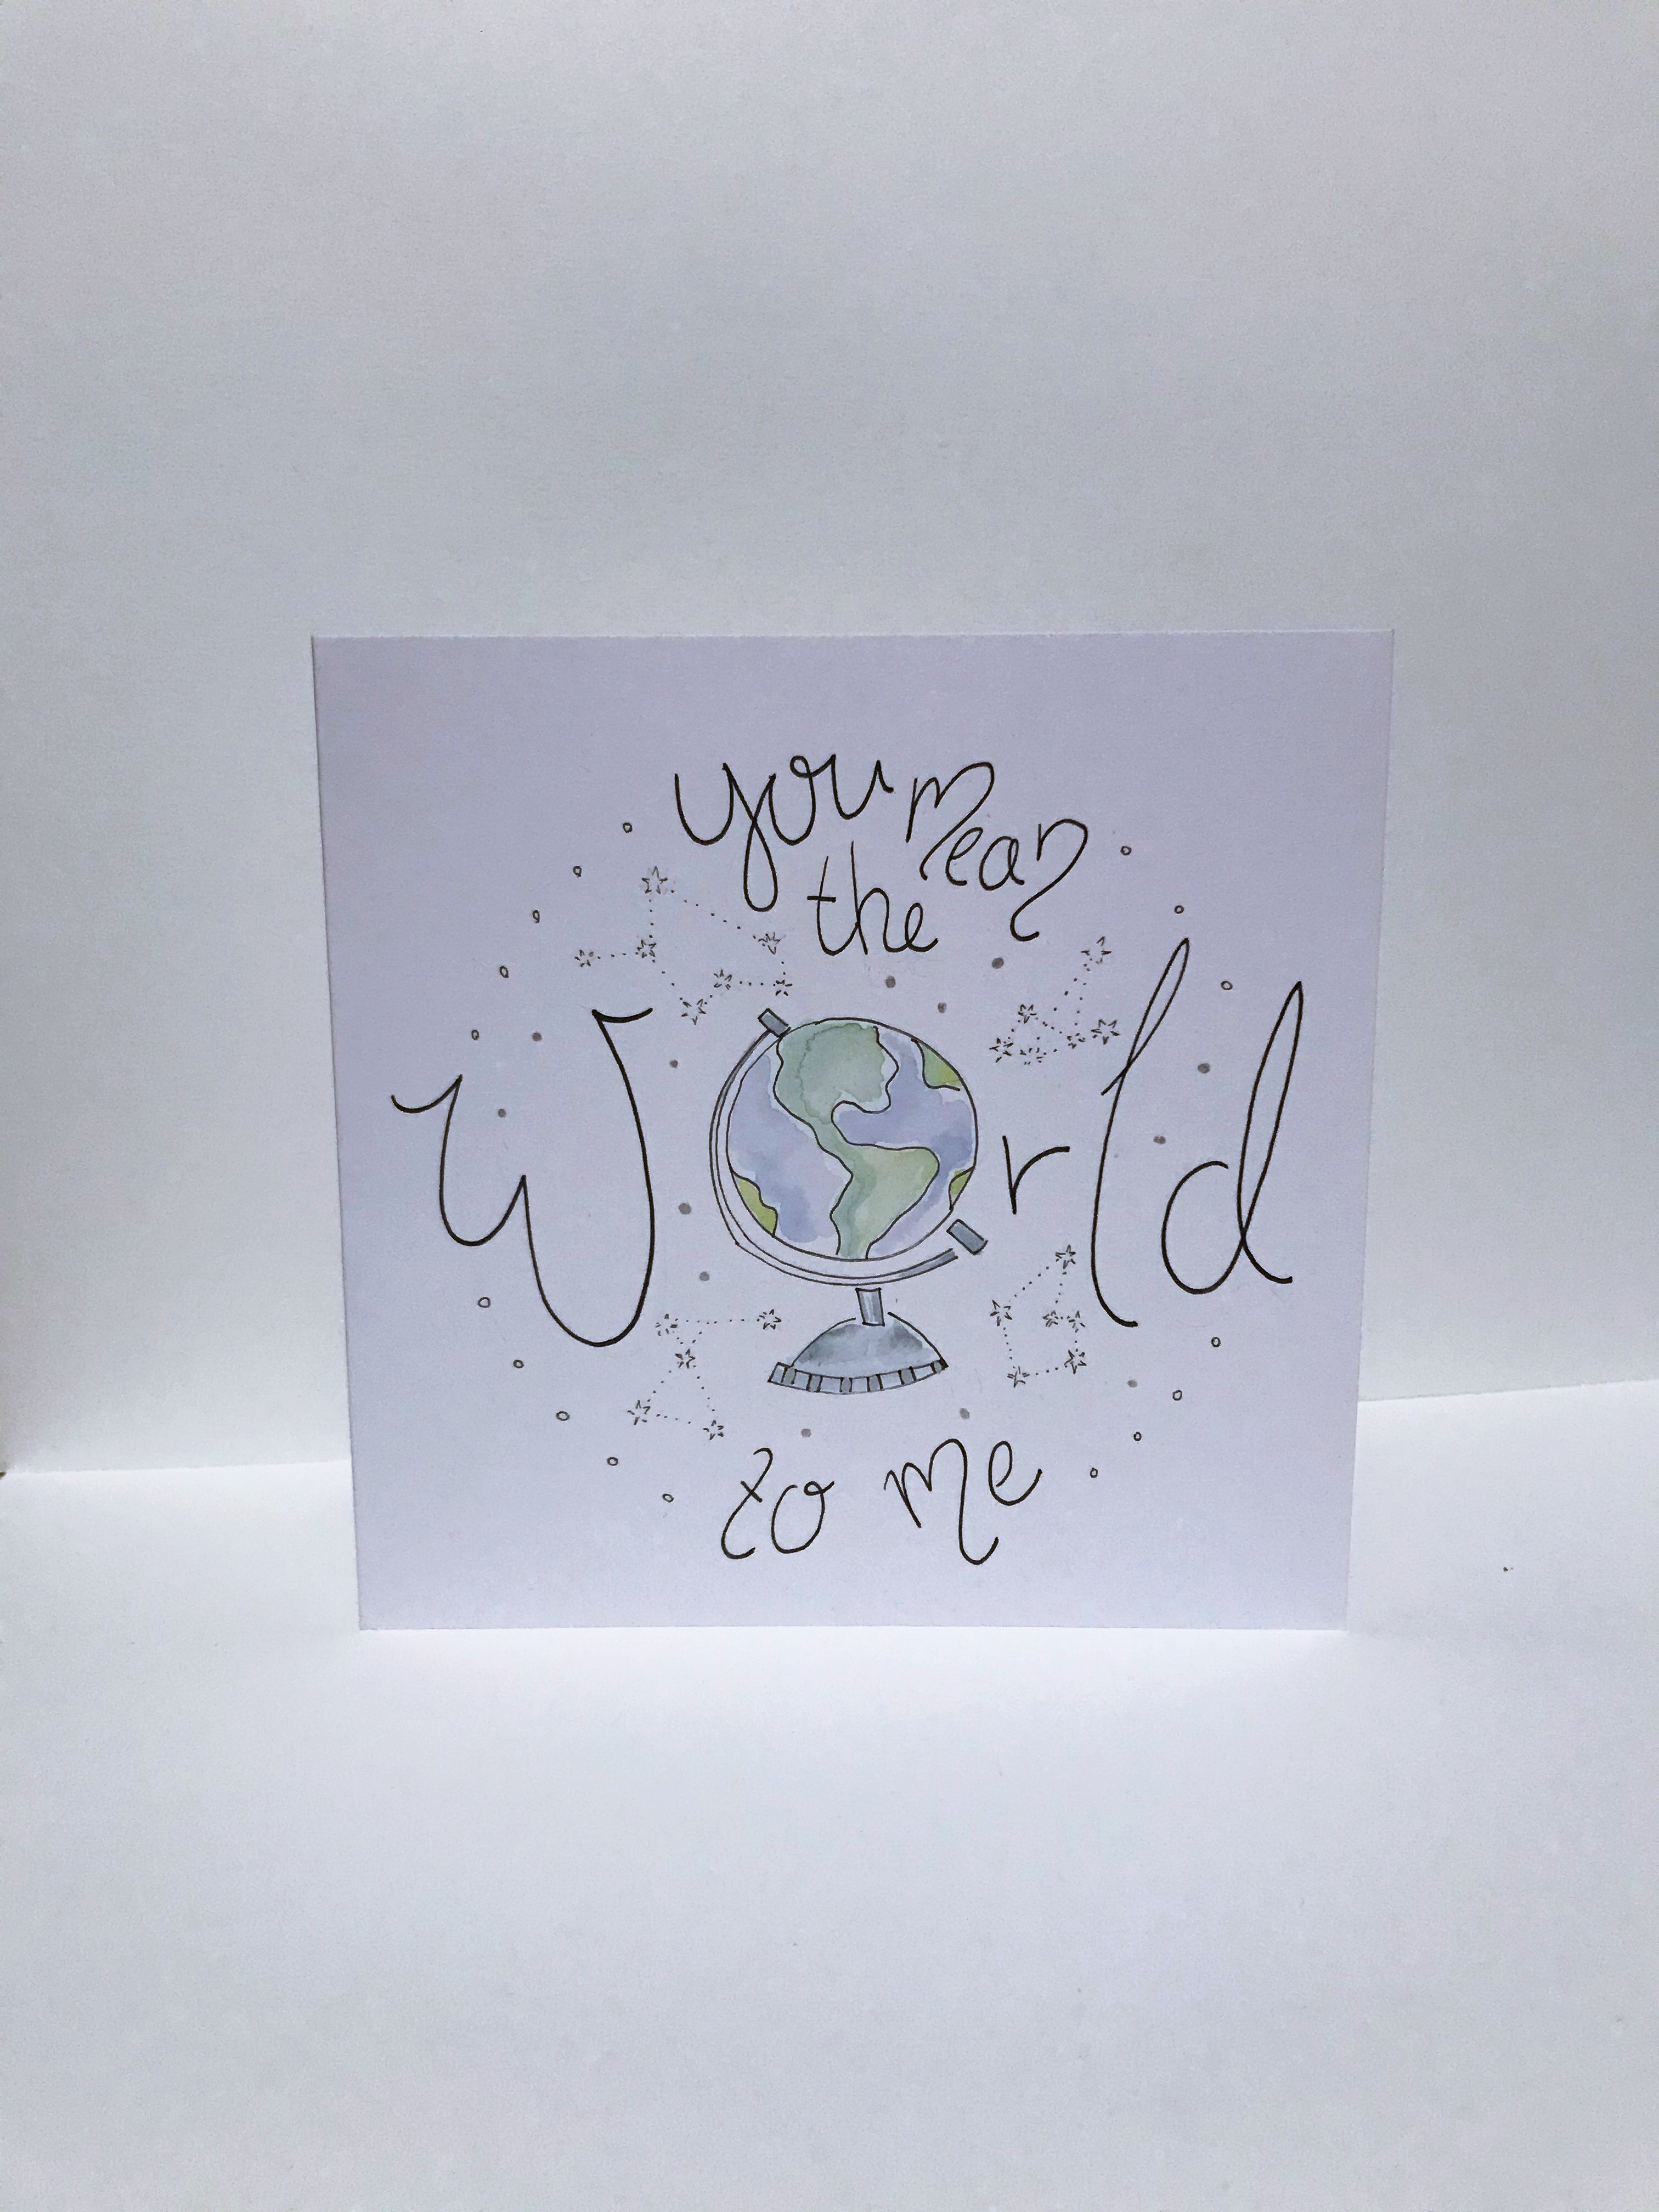 you mean
the
World
to me